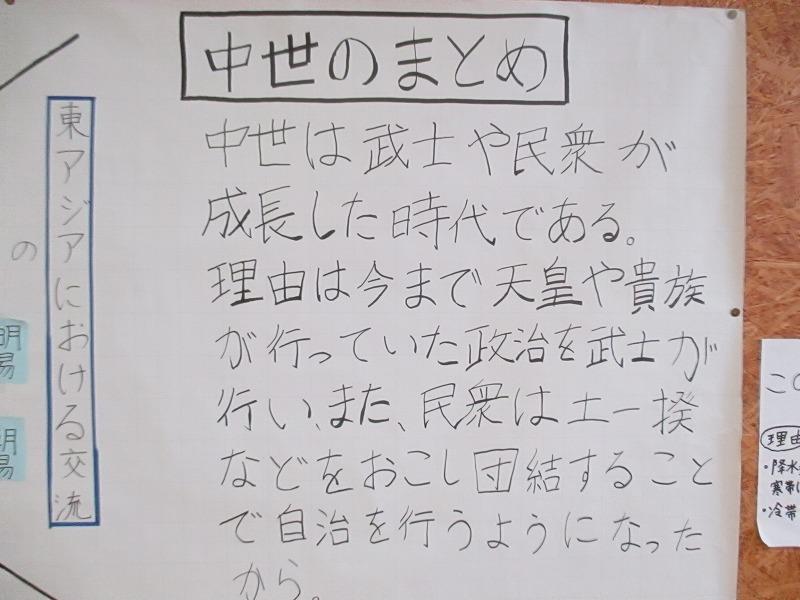 中世のまとめ
中世は武士や民衆が
成長した時代である。
理由は今まで天皇や貴族
が行っていた政治を武士が
行い、また、民衆は土一揆
などをおこし団結すること
で自治を行うようになった
から。
東アジアにおける交流
の
明
易
明
易
この
理由
・降水
寒帯
・冷帯